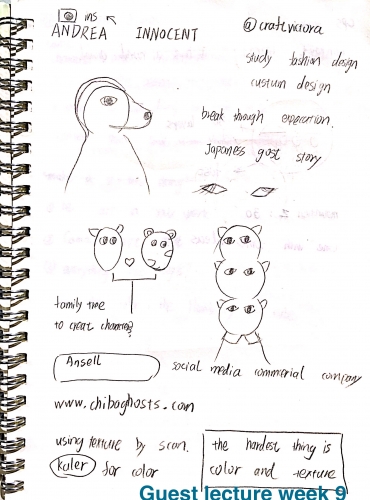 ins
ANDREA INNOCENT @craftvictora
study fashion design
custum design
break though expercation.
Japaness gost story
family tree
to creat character?
Ansell
social media commercial company
www.chibaghosts.com
using texture by scan.
Kuler for color
the hardest thing is
color and texture
Guest lecture week 9